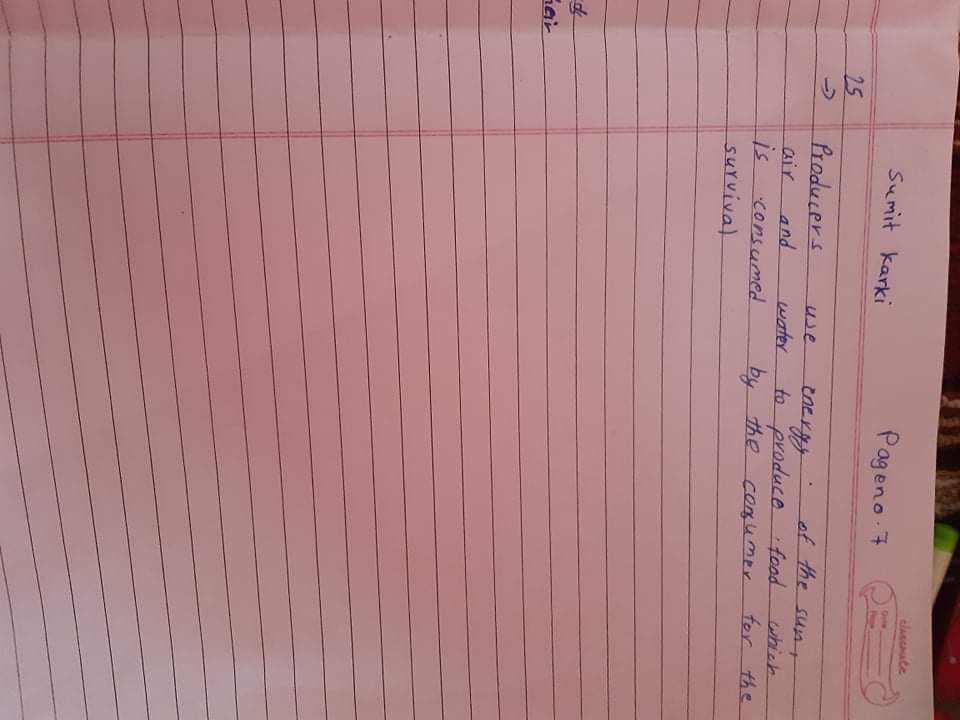 Sumit Karki Pageno.7
classmate
Date
Page
25
→ Producers use energy of the sun,
air and water to produce food which
is consumed by the consumer for the
survival